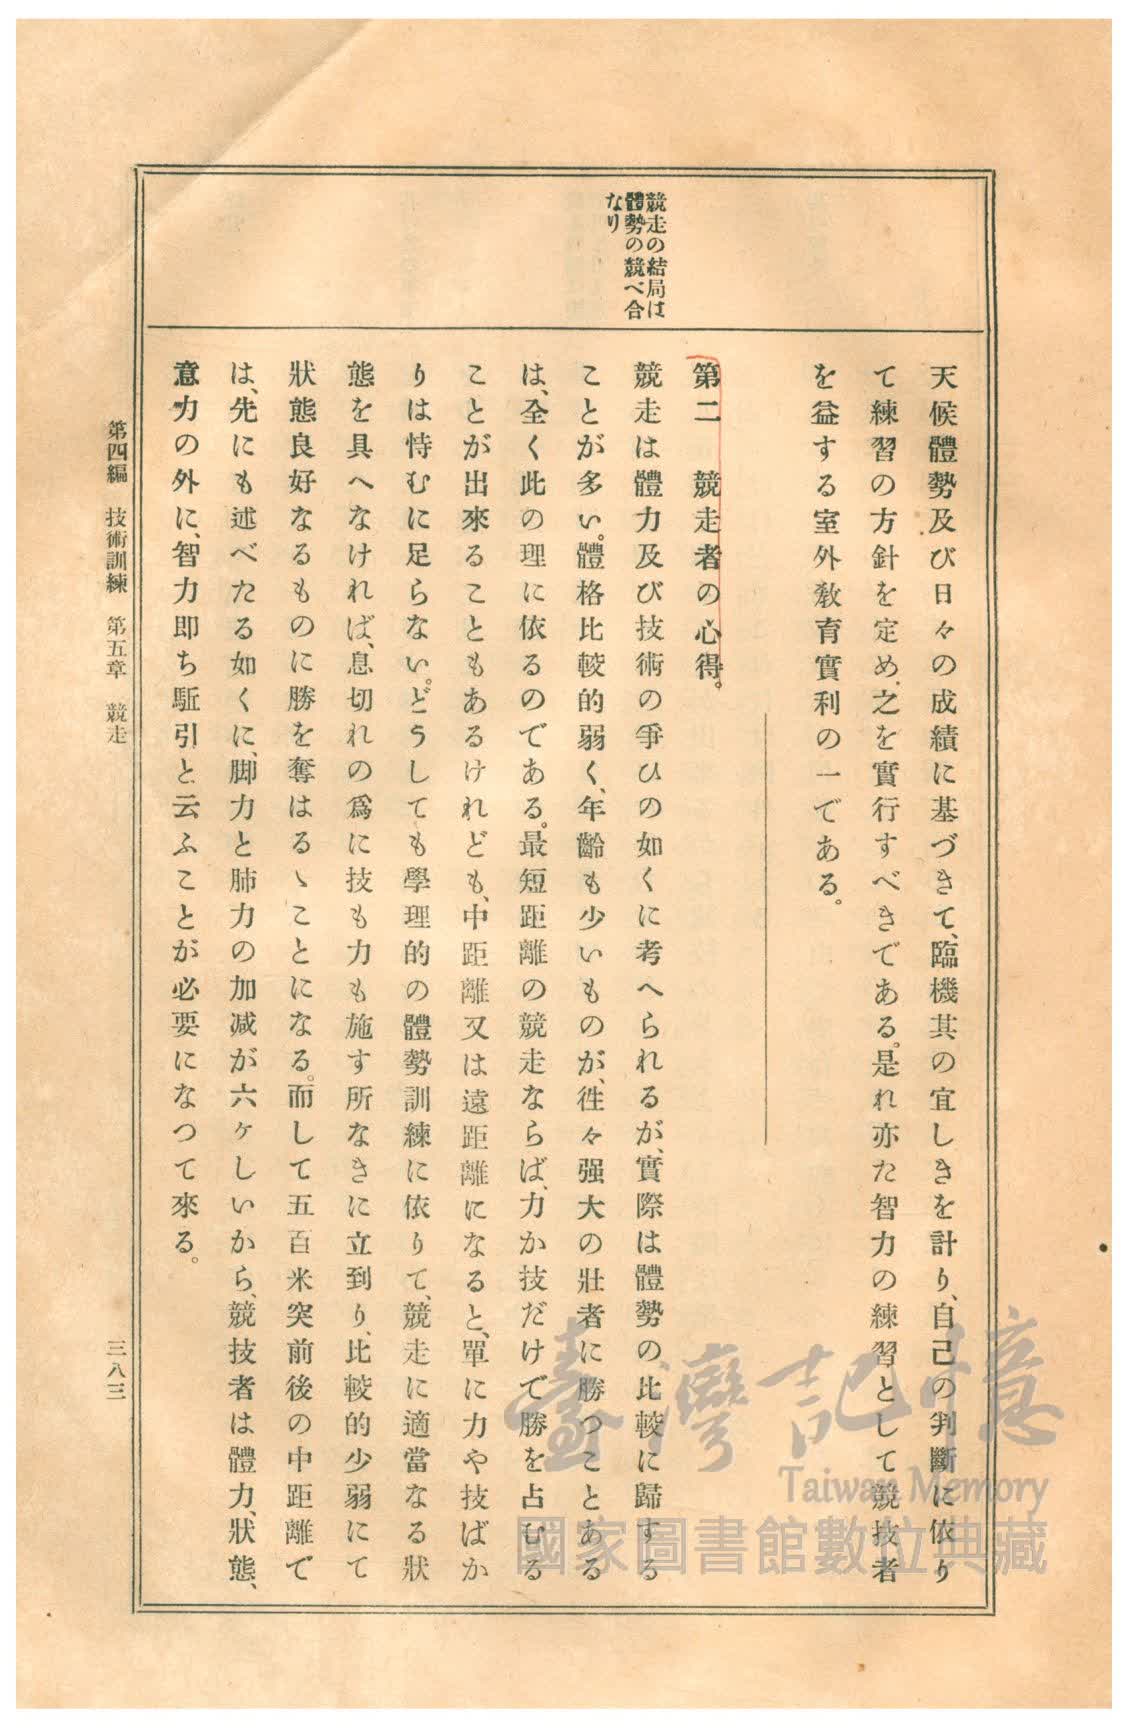 競走の結局は
體勢の競べ合
なり
天候體勢及び日々の成績に基づきて、臨機其の宜しきを計り、自己の判斷に依り
て練習の方針を定め、之を實行すべきである。是れ亦た智力の練習として競技者
を益する室外教育實利の一である。
第二　競走者の心得。
競走は體力及び技術の爭ひの如くに考へられるが、實際は體勢の比較に歸する
ことが多い。體格比較的弱く、年齡も少いものが、徃々强大の壯者に勝つことある
は、全く此の理に依るのである。最短距離の競走ならば、力か技だけで勝を占むる
ことが出來ることもあるけれども、中距離又は遠距離になると、單に力や技ばか
りは恃むに足らない。どうしても學理的の體勢訓練に依りて、競走に適當なる狀
態を具へなければ、息切れの爲に技も力も施す所なきに立到り、比較的少弱にて
狀態良好なるものに勝を奪はるゝことになる。而して五百米突前後の中距離で
は、先にも述べたる如くに、脚力と肺力の加减が六ケしいから、競技者は體力、狀態、
意力の外に、智力即ち駈引と云ふことが必要になつて來る。
第四編　技術訓練　第五章　競走
三八三
臺灣記憶
Taiwan Memory
國家圖書館數位典藏